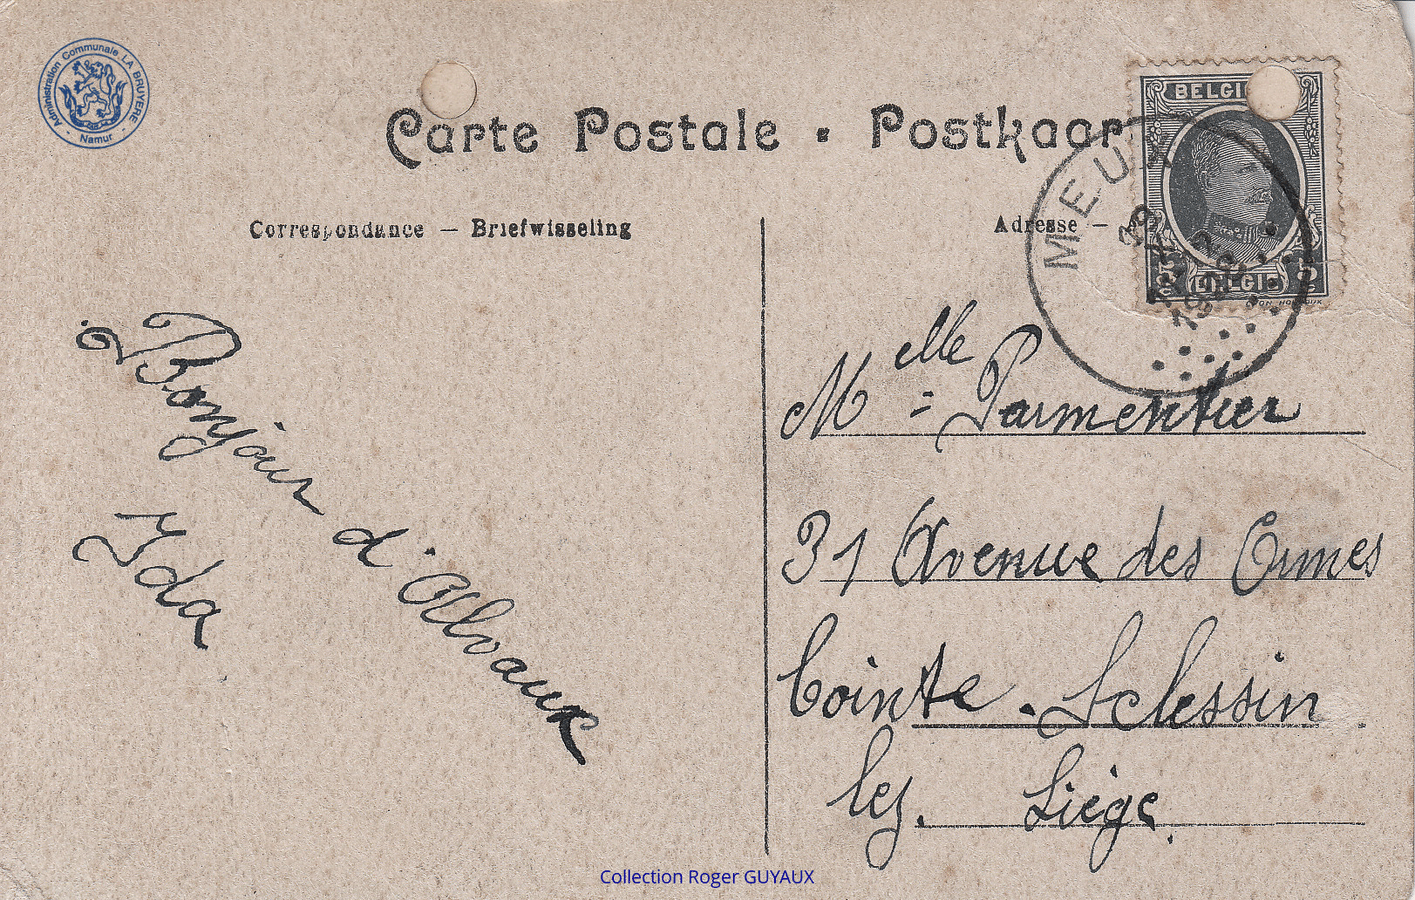 Administration Communale LA BRUYERE
- Namur -
Carte Postale · Postkaar
Correspondance — Briefwisseling
Adresse —
BELGI
BELGIË
MEUX
Bonjour d'Alvaux
Ida
Mlle Parmentier
31 Avenue des Ormes
Cointe. Sclessin
lez. Liège.
Collection Roger GUYAUX